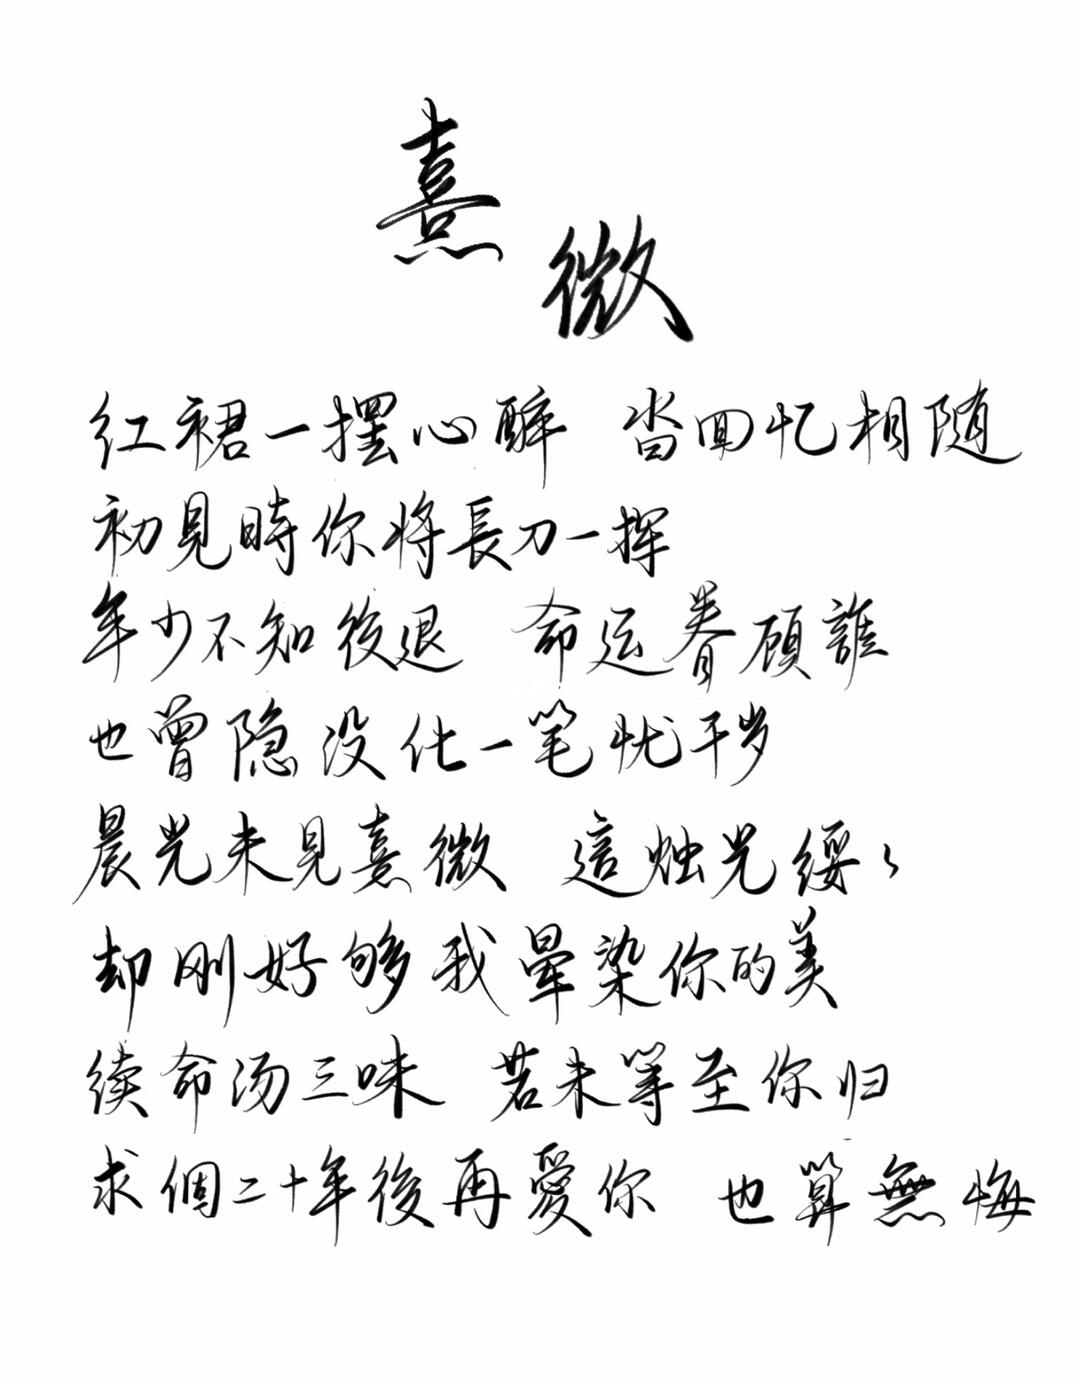 熹
微
红裙一摆心醉 沓回忆相随
初見時你将長刀一挥
年少不知後退 命运眷顾誰
也曾隐没化一笔忧千岁
晨光未見熹微 這烛光绥々
却刚好够我晕染你的美
续命汤三味 若未等至你归
求個二十年後再愛你 也算無悔